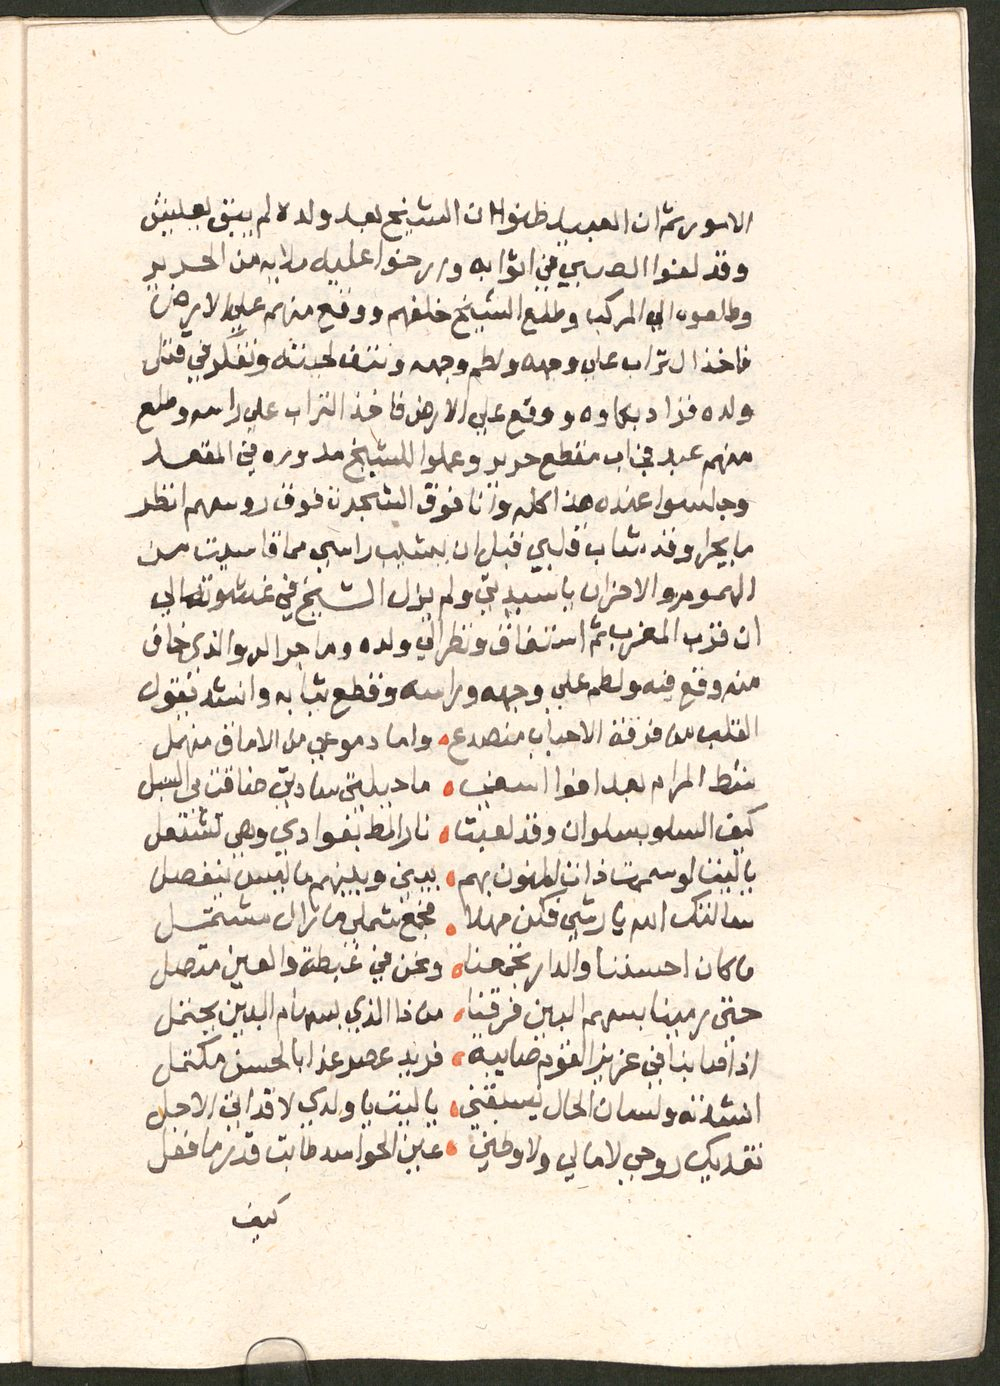 الامور ثم ان العبيد ظنوا ان الشيخ بعد ولده لم يبق يعيش
وقد لفوا الصبي في اثوابه وارخوا عليه ملايه من الحرير
وطلعوه الي المركب وطلع الشيخ خلفهم ووقع منهم علي الارض
فاخذ ال تراب علي وجهه ولطم وجهه ونتف لحيته وتفكر في قتل
ولده فزاد بكاوه ووقع علي الارض فاخذ التراب علي راسه وطلع
منهم عبد في اب مقطع حرير وعملوا للشيخ مدوره في المقعد
وجلسوا عنده هذا كله وانا فوق الشجرة فوق روسهم انظر
ما يجرا وقد شاب قلبي قبل ان يشيب راسي مما قاسيت من
الهموم والاحزان يا سيدتي ولم يزل الشيخ في غشوته الي
ان قرب المغرب ثم استفاق ونظر الي ولده وما جرا له والذي خاف
منه وقع فيه ولطم علي وجهه وراسه وقطع ثيابه وانشد يقول
القلب من فرقة الاحباب منصدع واما دموعي من الاماق منهمل
شط المرام بعد افوا اسفي ما حيلتي سادتي ضاقت بي السبل
كيف السلو بسلوان وقد لعبت نار بفوادي وهي تشتعل
يا ليت لو سمرت ذات المنون بهم بيني وبينهم ما ليس ينفصل
سالتك الله يا رشي فكن مهلا مجمع شملي ما زال مشتمل
ما كان احسننا والدار تجمعنا ونحن في غبطة والعين متصل
حتي رمينا بسهم البين فرقنا من ذا الذي بسهام البين يحتمل
اذ اصابنا في عزيز القوم صايبة فريد عصر غدا بالحسن مكتمل
انشدته ولسان الحال يسبقني يا ليت يا ولدي لا قد اتي الاجل
نفديك روحي لا مالي ولا وطني عين الحواسد طابت
كيف